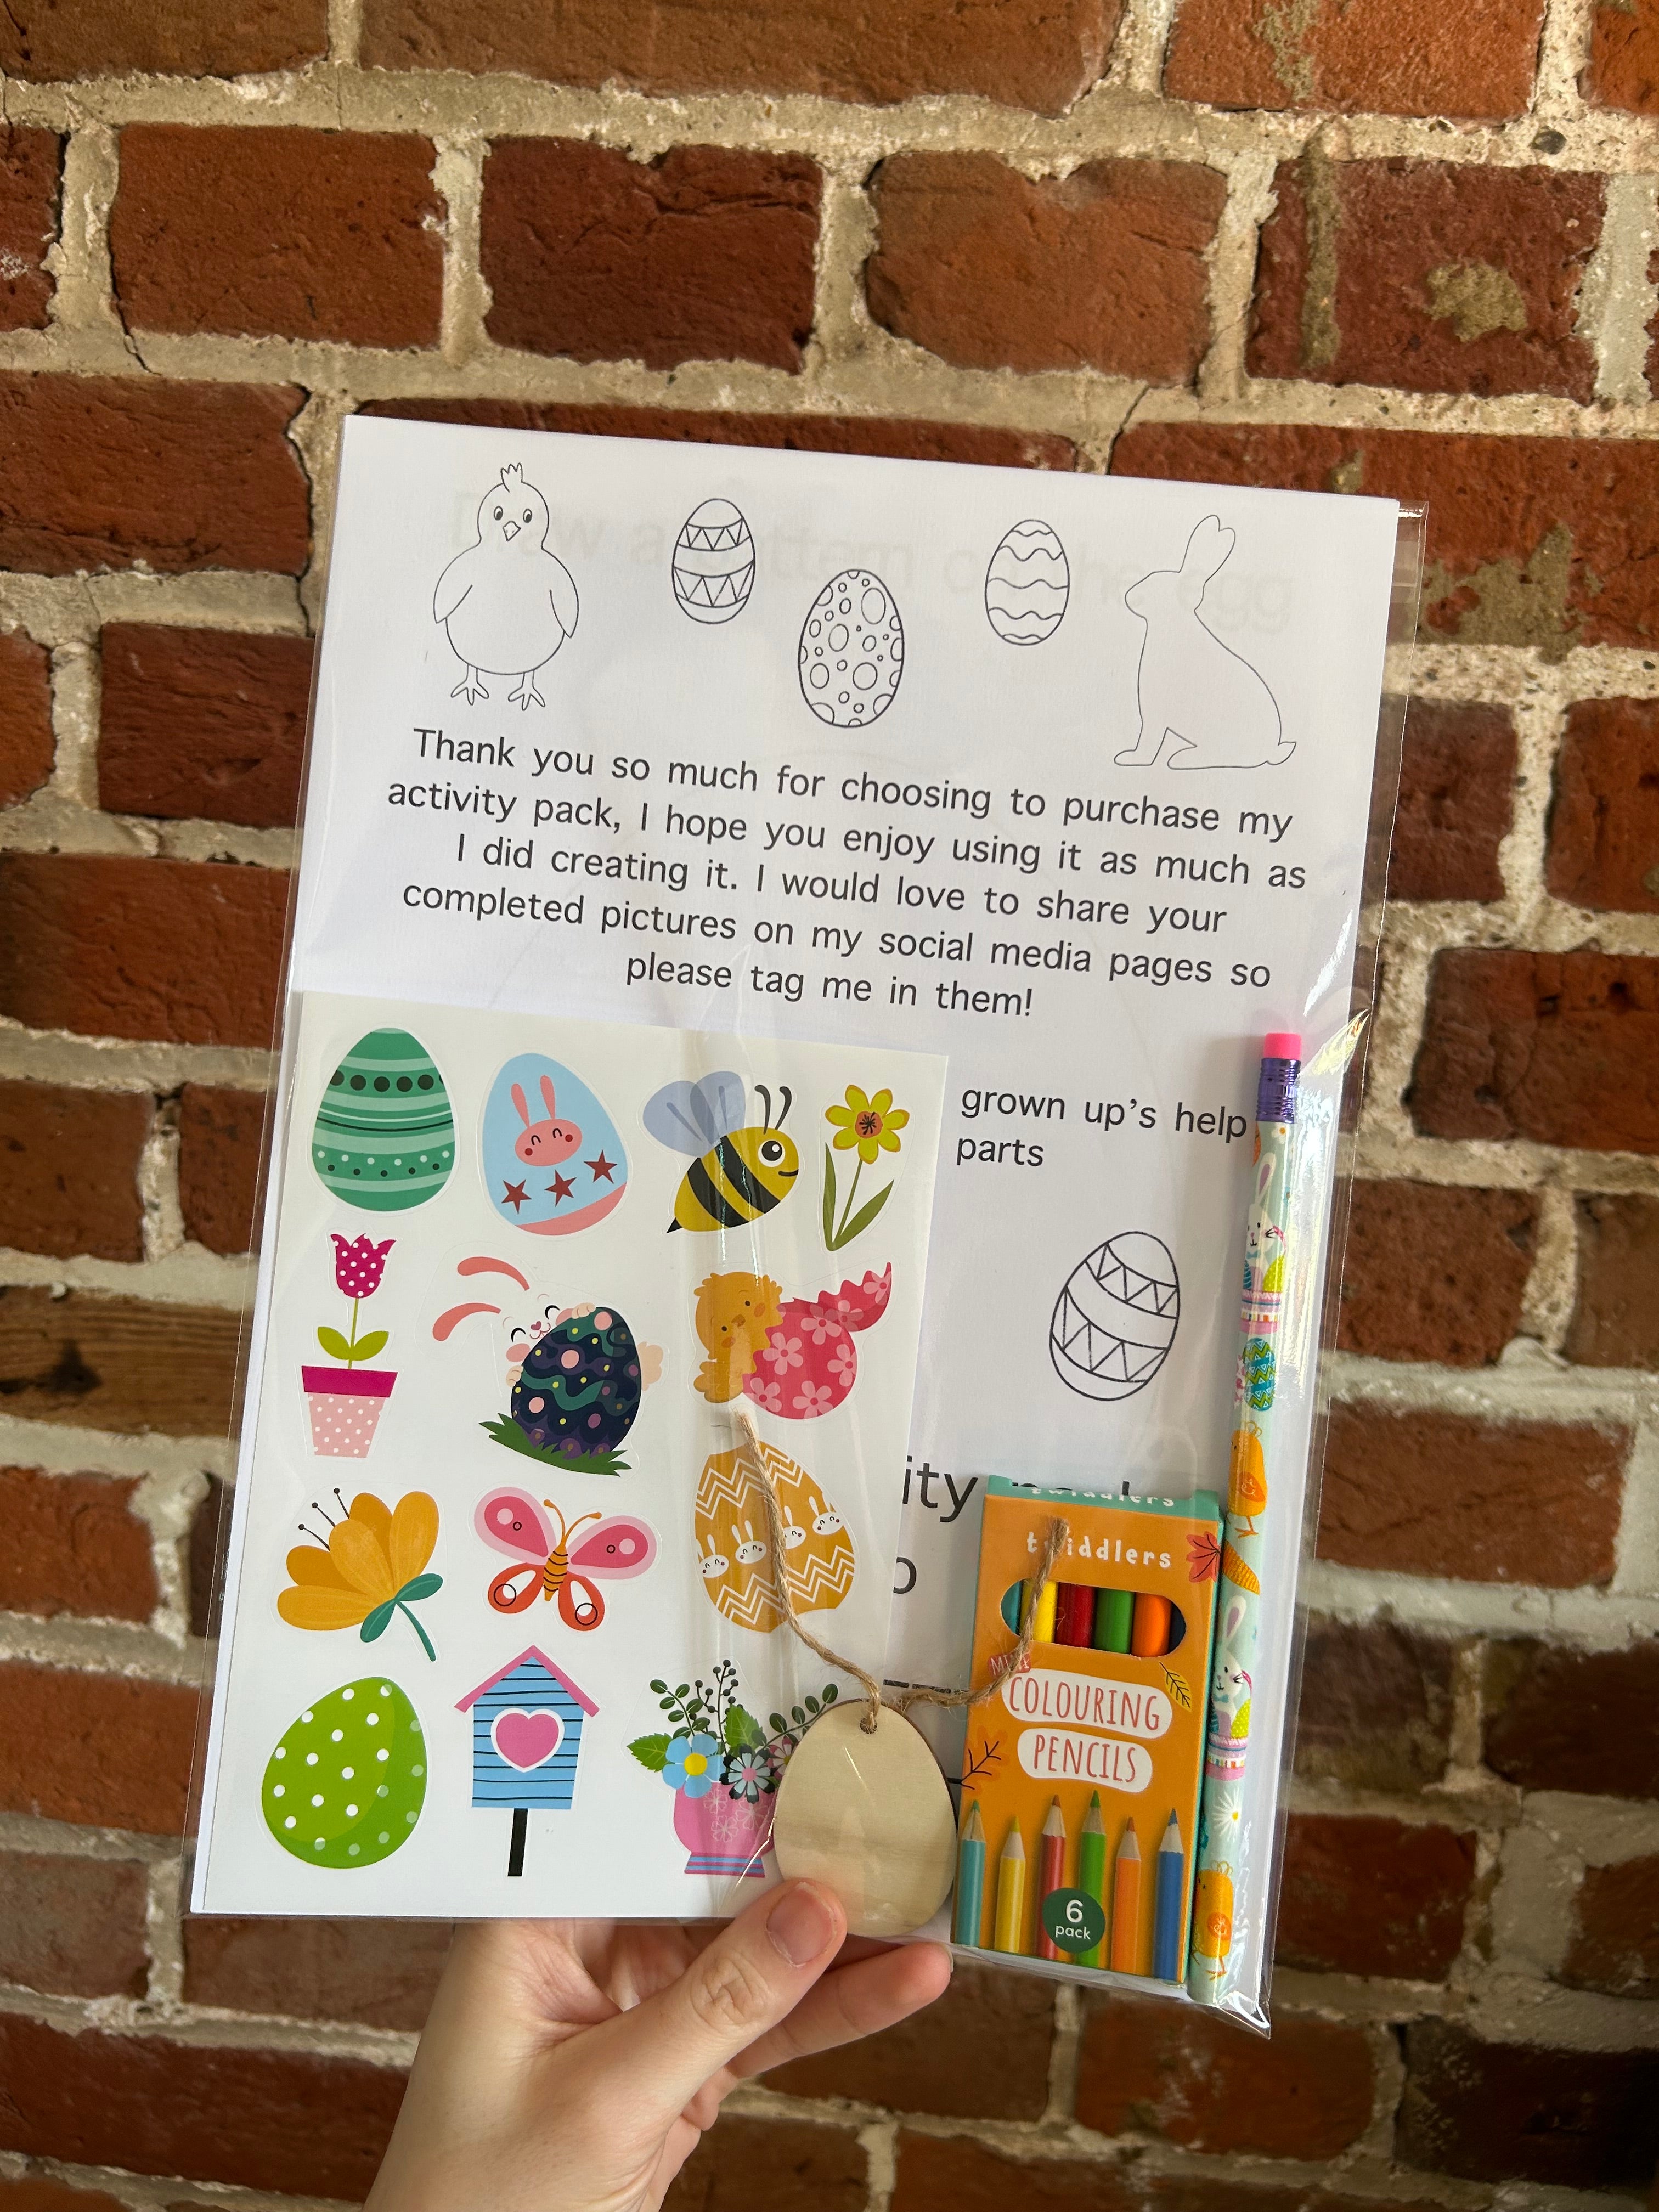 Draw a pattern on the egg
Thank you so much for choosing to purchase my
activity pack, I hope you enjoy using it as much as
I did creating it. I would love to share your
completed pictures on my social media pages so
please tag me in them!
grown up's help
parts
ity
twiddlers
twiddlers
MINI
COLOURING
PENCILS
6
pack